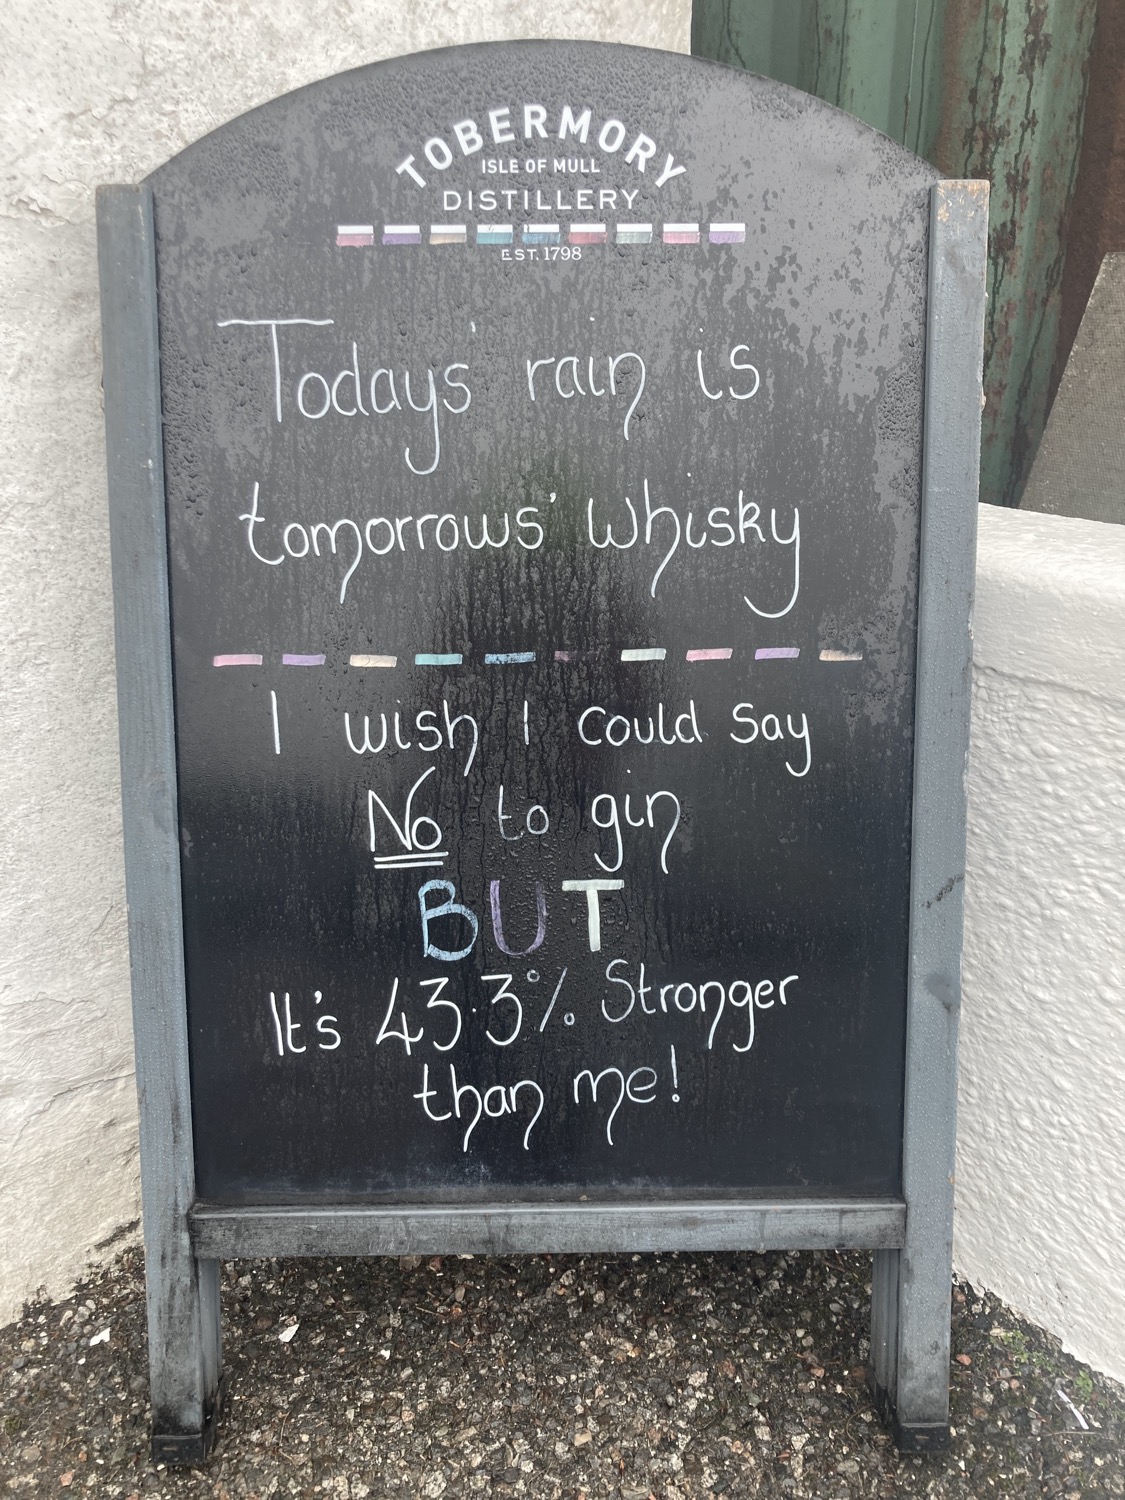 TOBERMORY
ISLE OF MULL
DISTILLERY
EST. 1798
Todays' rain is
tomorrows' whisky
I wish I could say
No to gin
BUT
It's 43.3% Stronger
than me!